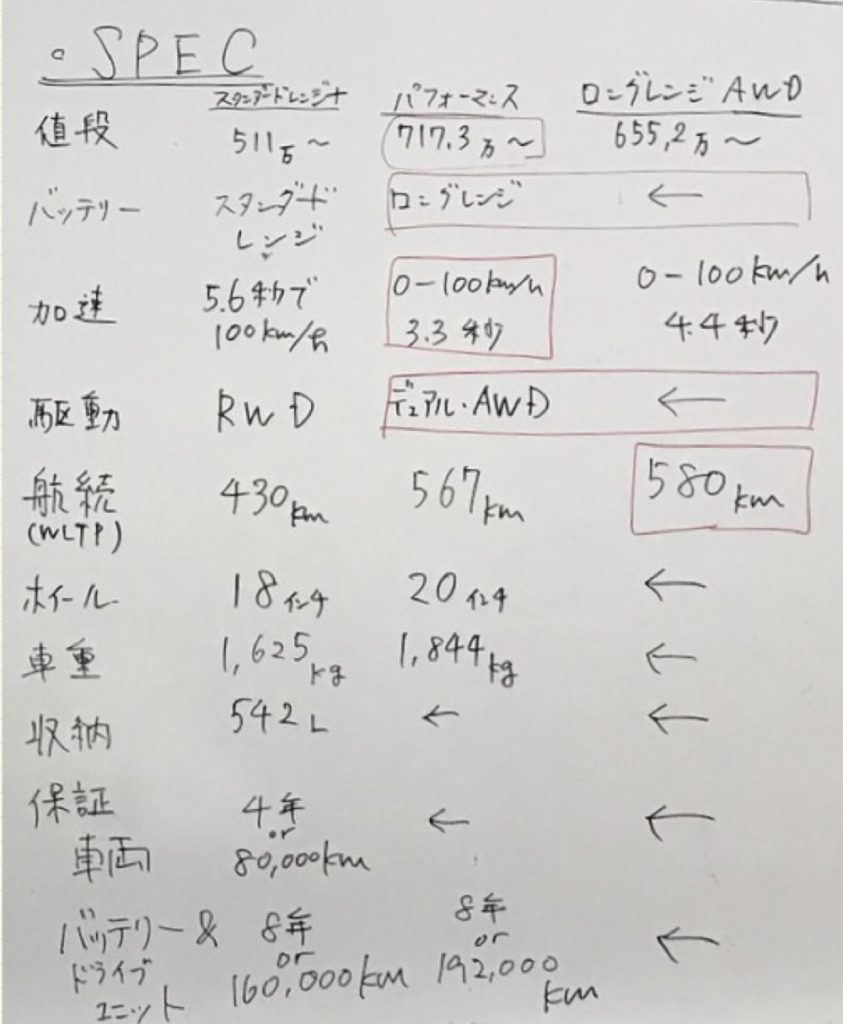 ・SPEC
スタンダードレンジ+ パフォーマンス ロングレンジAWD
値段 511万〜 717.3万〜 655,2万〜
バッテリー スタンダード ロングレンジ ←
レンジ
加速 5.6秒で 0-100km/h 0-100km/h
100km/h 3.3秒 4.4秒
駆動 RWD デュアル・AWD ←
航続 430km 567km 580km
(WLTP)
ホイール 18インチ 20インチ ←
車重 1,625kg 1,844kg ←
収納 542L ← ←
保証 4年 ← ←
or
車両 80,000km
バッテリー& 8年 8年 ←
or or
ドライブ 160,000km 192,000
ユニット km